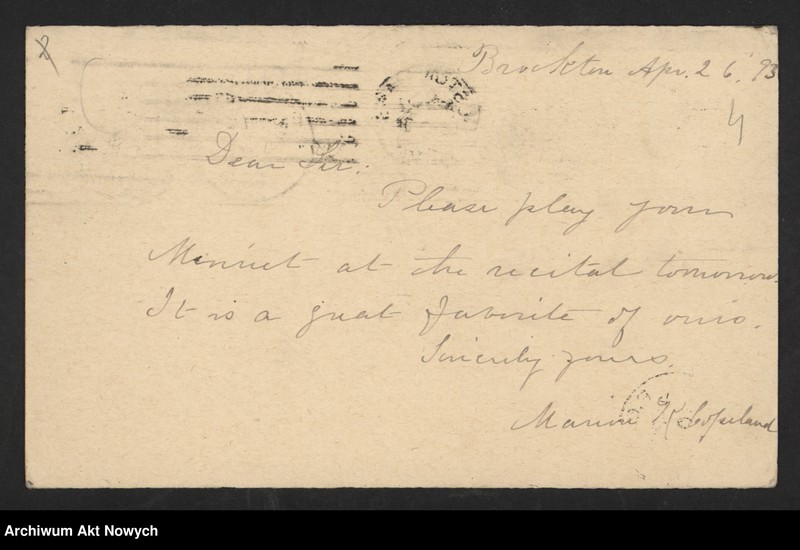 Brockton Apr. 26. 93
4
Dear Sir:
Please play your
Minuet at the recital tomorrow.
It is a great favorite of ours.
Sincerely yours,
Marion K Copeland
Archiwum Akt Nowych